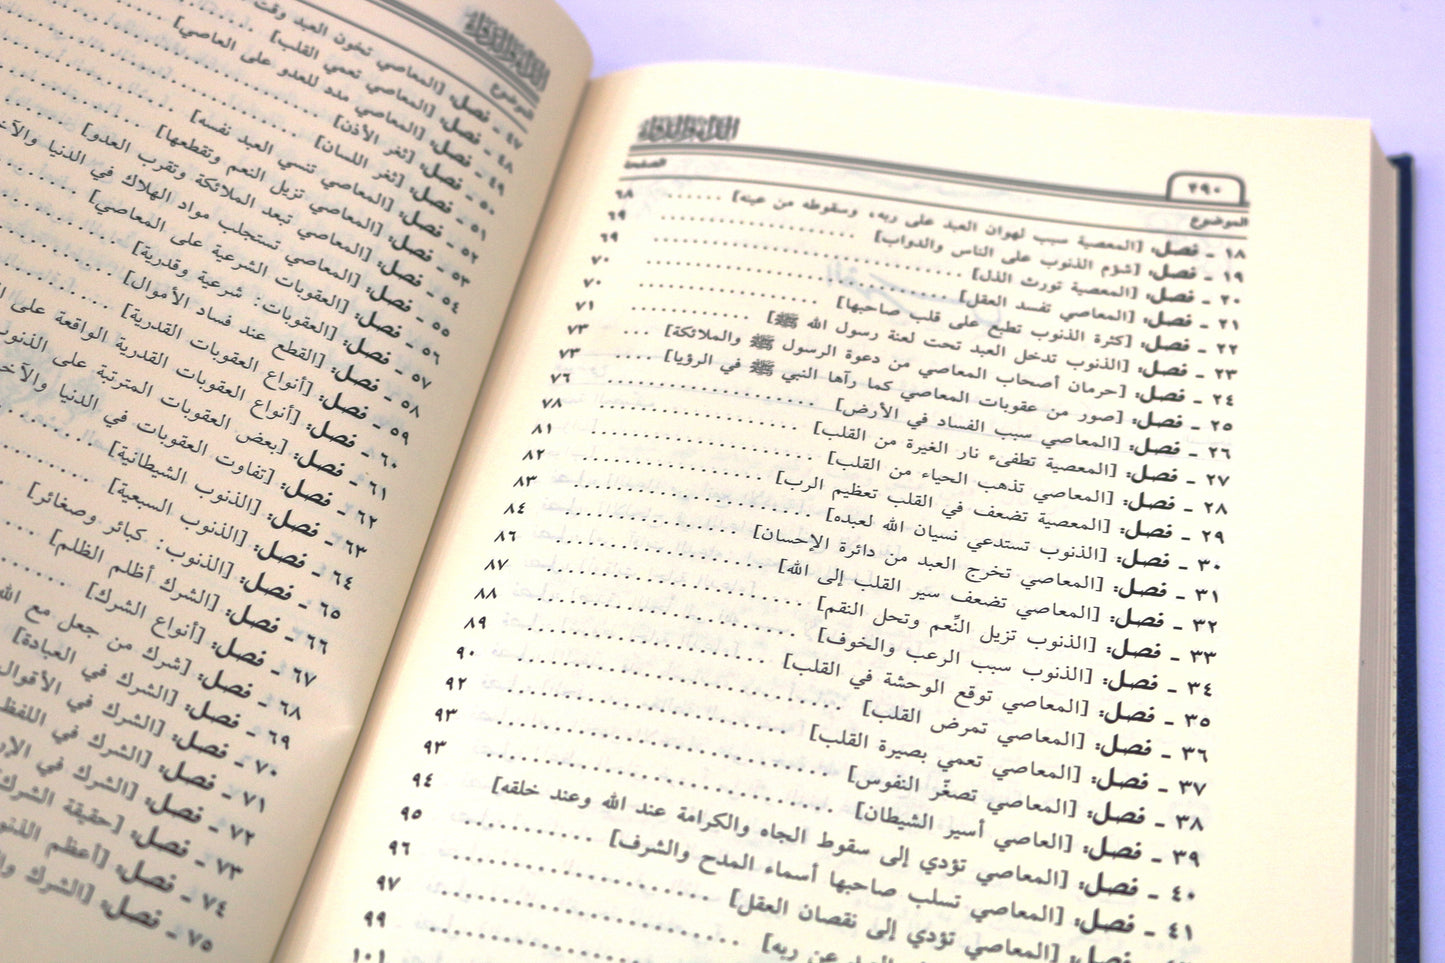 الداء والدواء
٢٩٠
الموضوع الصفحة
١٨ ـ فصل: [المعصية سبب لهوان العبد على ربه، وسقوطه من عينه] ٦٨
١٩ ـ فصل: [شؤم الذنوب على الناس والدواب] ٦٩
٢٠ ـ فصل: [المعصية تورث الذل] ٦٩
٢١ ـ فصل: [المعاصي تفسد العقل] ٧٠
٢٢ ـ فصل: [كثرة الذنوب تطبع على قلب صاحبها] ٧٠
٢٣ ـ فصل: [الذنوب تدخل العبد تحت لعنة رسول الله ﷺ] ٧١
٢٤ ـ فصل: [حرمان أصحاب المعاصي من دعوة الرسول ﷺ والملائكة] ٧٣
٢٥ ـ فصل: [صور من عقوبات المعاصي كما رآها النبي ﷺ في الرؤيا] ٧٣
٢٦ ـ فصل: [المعاصي سبب الفساد في الأرض] ٧٦
٢٧ ـ فصل: [المعصية تطفىء نار الغيرة من القلب] ٧٨
٢٨ ـ فصل: [المعاصي تذهب الحياء من القلب] ٨١
٢٩ ـ فصل: [المعصية تضعف في القلب تعظيم الرب] ٨٢
٣٠ ـ فصل: [الذنوب تستدعي نسيان الله لعبده] ٨٣
٣١ ـ فصل: [المعاصي تخرج العبد من دائرة الإحسان] ٨٤
٣٢ ـ فصل: [المعاصي تضعف سير القلب إلى الله] ٨٦
٣٣ ـ فصل: [الذنوب تزيل النِّعم وتحل النقم] ٨٧
٣٤ ـ فصل: [الذنوب سبب الرعب والخوف] ٨٨
٣٥ ـ فصل: [المعاصي توقع الوحشة في القلب] ٨٩
٣٦ ـ فصل: [المعاصي تمرض القلب] ٩٠
٣٧ ـ فصل: [المعاصي تعمي بصيرة القلب] ٩٢
٣٨ ـ فصل: [المعاصي تصغّر النفوس] ٩٣
٣٩ ـ فصل: [العاصي أسير الشيطان] ٩٣
٤٠ ـ فصل: [المعاصي تؤدي إلى سقوط الجاه والكرامة عند الله وعند خلقه] ٩٤
٤١ ـ فصل: [المعاصي تسلب صاحبها أسماء المدح والشرف] ٩٥
فصل: [المعاصي تؤدي إلى نقصان العقل] ٩٦
العبد عن ربه] ٩٧
٩٩
١٠١
الداء والدواء
الموضوع
٤٧ ـ فصل: [المعاصي تخون العبد وقت
٤٨ ـ فصل: [المعاصي تعمي القلب]
٤٩ ـ فصل: [المعاصي مدد للعدو على العاصي]
٥٠ ـ فصل: [ثغر الأذن]
٥١ ـ فصل: [ثغر اللسان]
٥٢ ـ فصل: [المعاصي تنسي العبد نفسه]
٥٣ ـ فصل: [المعاصي تزيل النعم وتقطعها]
٥٤ ـ فصل: [المعاصي تبعد الملائكة وتقرب العدو]
٥٥ ـ فصل: [المعاصي تستجلب مواد الهلاك في الدنيا
٥٦ ـ فصل: [العقوبات الشرعية على المعاصي]
٥٧ ـ فصل: [العقوبات: شرعية وقدرية]
٥٨ ـ فصل: [القطع عند فساد الأموال]
٥٩ ـ فصل: [أنواع العقوبات القدرية]
٦٠ ـ فصل: [أنواع العقوبات القدرية الواقعة على
٦١ ـ فصل: [بعض العقوبات المترتبة على
٦٢ ـ فصل: [تفاوت العقوبات في الدنيا
٦٣ ـ فصل: [الذنوب الشيطانية]
٦٤ ـ فصل: [الذنوب السبعية]
٦٥ ـ فصل: [الذنوب: كبائر وصغائر]
٦٦ ـ فصل: [الشرك أظلم الظلم]
٦٧ ـ فصل: [أنواع الشرك]
٦٨ ـ فصل: [شرك من جعل مع
٦٩ ـ فصل: [الشرك في العبادة]
٧٠ ـ فصل: [الشرك في
٧١ ـ فصل: [الشرك في
٧٢ ـ فصل: [الشرك في
٧٣ ـ فصل: [حقيقة الشرك
٧٤ ـ فصل: [أعظم
٧٥ ـ فصل: [الشرك